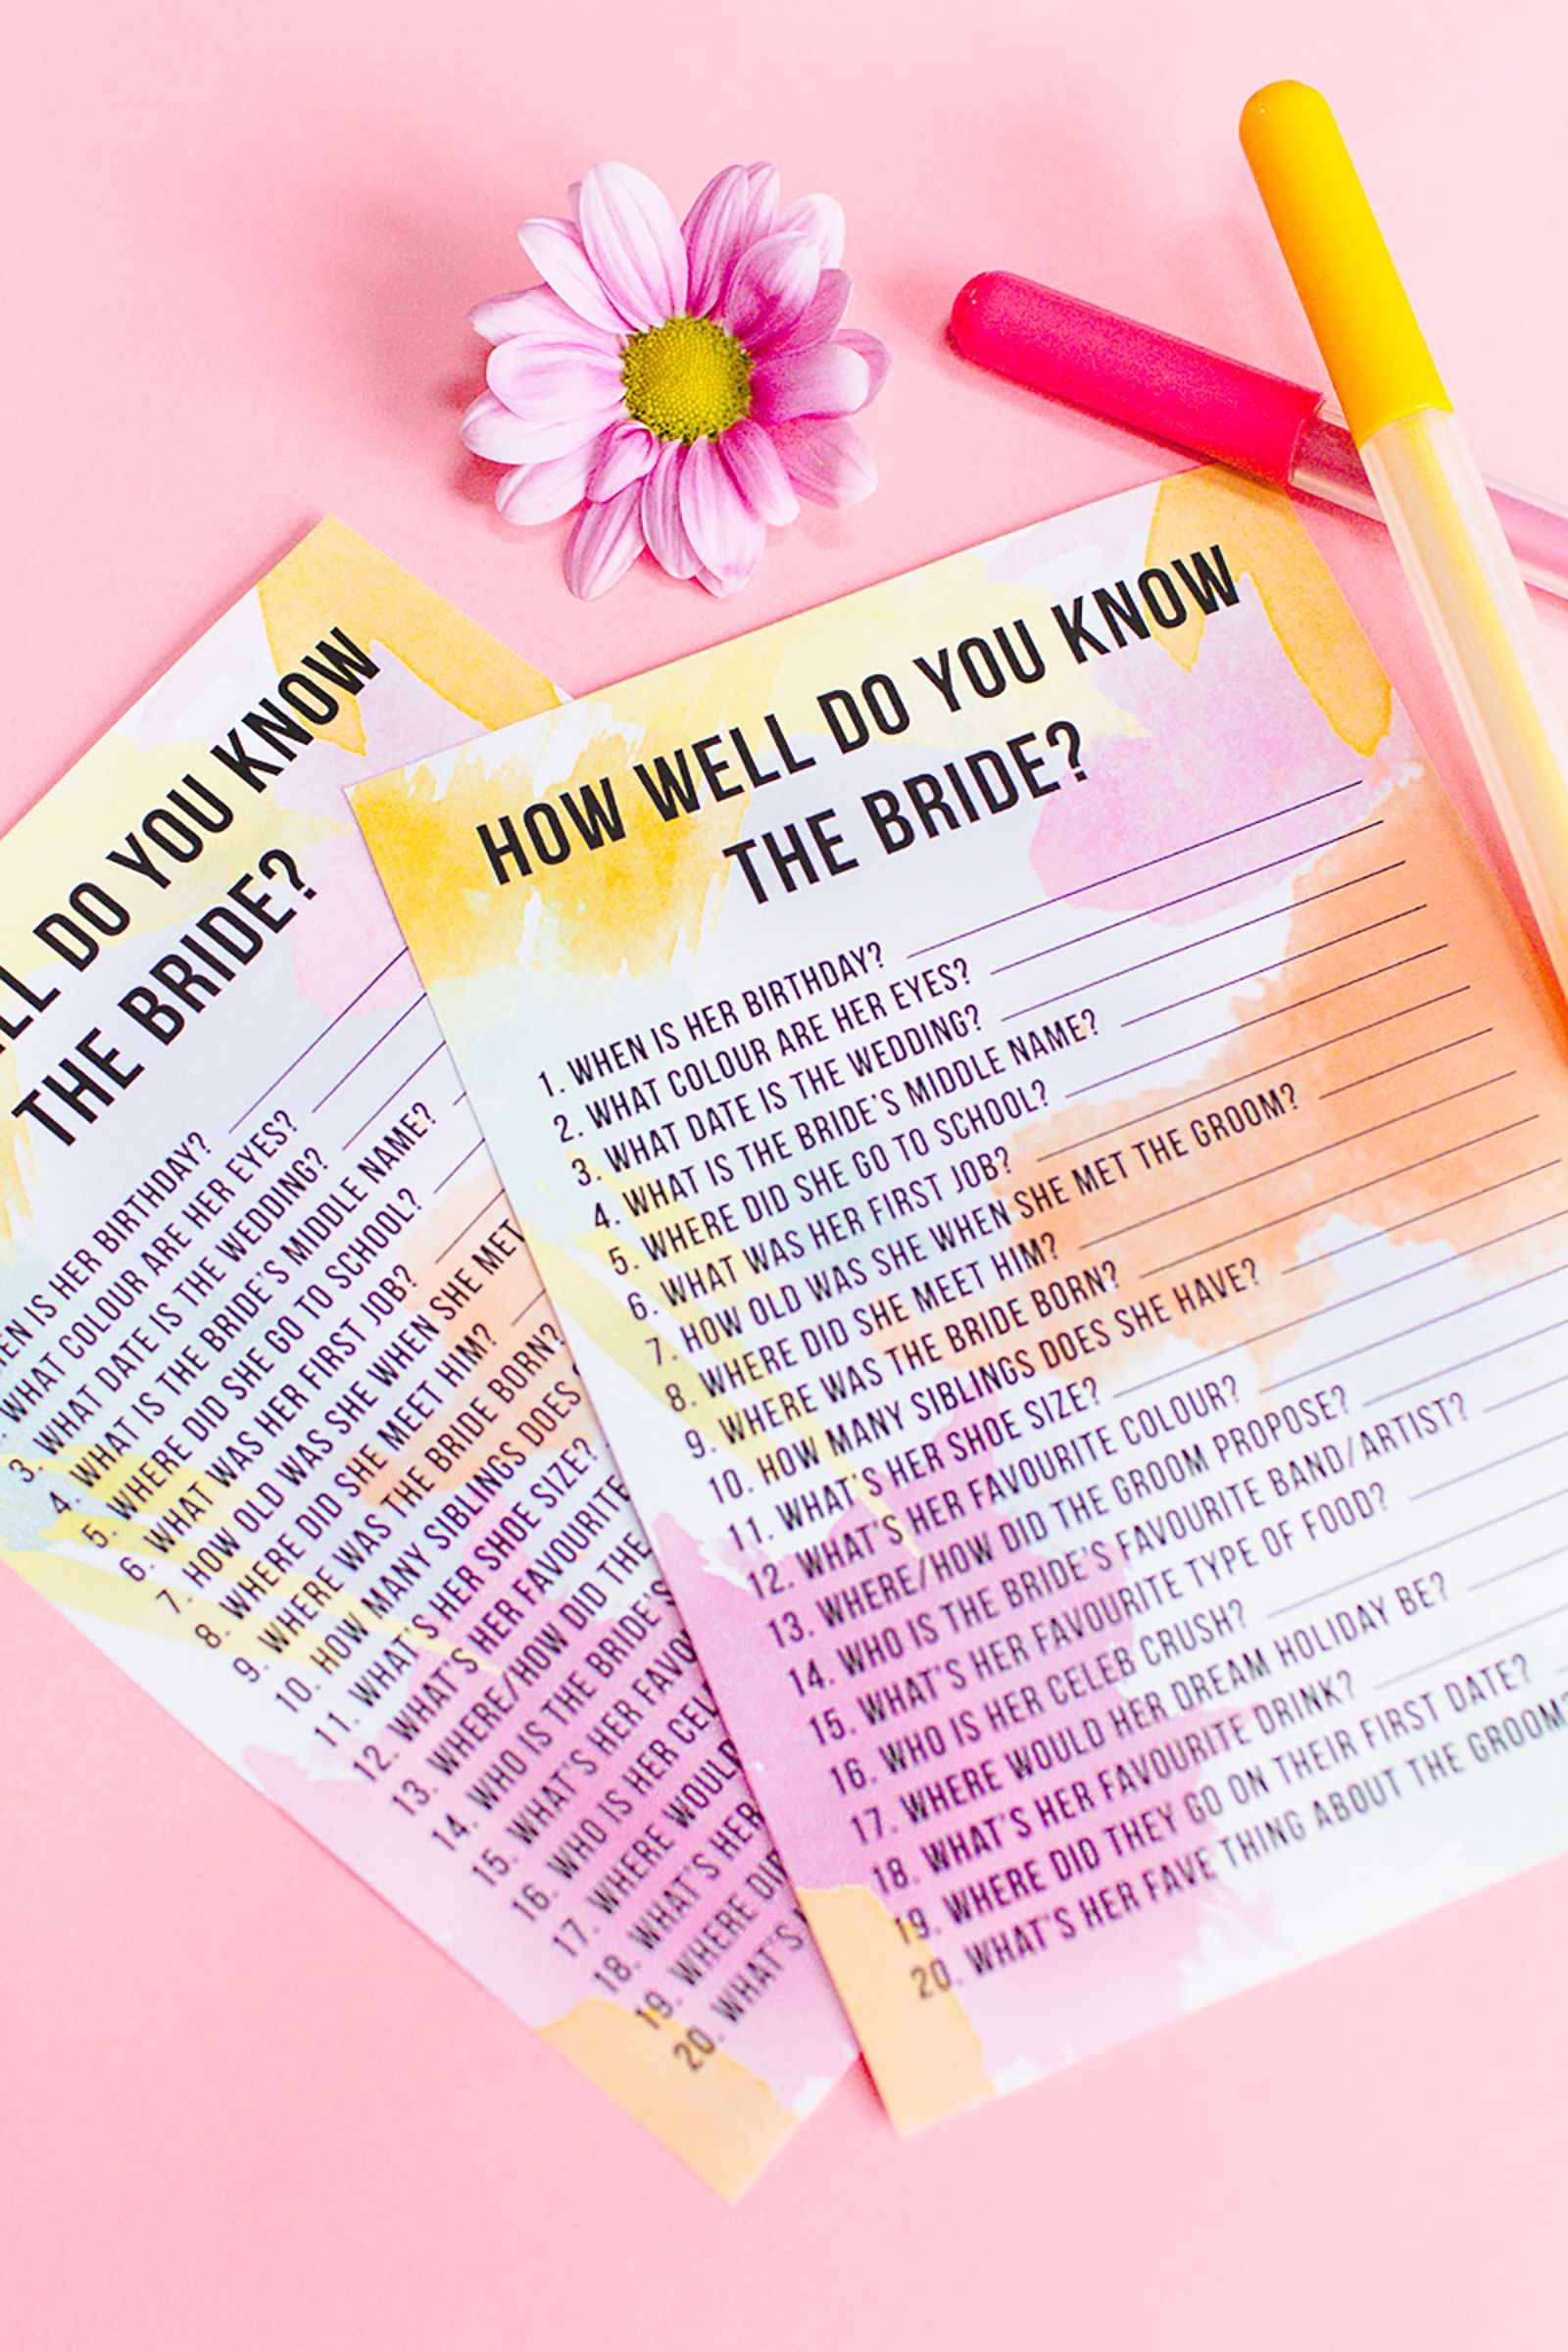 LL DO YOU KNOW
THE BRIDE?
EN IS HER BIRTHDAY?
WHAT COLOUR ARE HER EYES?
3. WHAT DATE IS THE WEDDING?
4. WHAT IS THE BRIDE'S MIDDLE NAME?
5. WHERE DID SHE GO TO SCHOOL?
6. WHAT WAS HER FIRST JOB?
7. HOW OLD WAS SHE WHEN SHE MET
8. WHERE DID SHE MEET HIM?
9. WHERE WAS THE BRIDE BORN?
10. HOW MANY SIBLINGS DOES
11. WHAT'S HER SHOE SIZE?
12. WHAT'S HER FAVOURITE
13. WHERE/HOW DID THE
14. WHO IS THE BRIDE'S
15. WHAT'S HER FAVO
16. WHO IS HER CEL
17. WHERE WOULD
18. WHAT'S HER
19. WHERE DID
20. WHAT'S
HOW WELL DO YOU KNOW
THE BRIDE?
1. WHEN IS HER BIRTHDAY?
2. WHAT COLOUR ARE HER EYES?
3. WHAT DATE IS THE WEDDING?
4. WHAT IS THE BRIDE'S MIDDLE NAME?
5. WHERE DID SHE GO TO SCHOOL?
6. WHAT WAS HER FIRST JOB?
7. HOW OLD WAS SHE WHEN SHE MET THE GROOM?
8. WHERE DID SHE MEET HIM?
9. WHERE WAS THE BRIDE BORN?
10. HOW MANY SIBLINGS DOES SHE HAVE?
11. WHAT'S HER SHOE SIZE?
12. WHAT'S HER FAVOURITE COLOUR?
13. WHERE/HOW DID THE GROOM PROPOSE?
14. WHO IS THE BRIDE'S FAVOURITE BAND/ARTIST?
15. WHAT'S HER FAVOURITE TYPE OF FOOD?
16. WHO IS HER CELEB CRUSH?
17. WHERE WOULD HER DREAM HOLIDAY BE?
18. WHAT'S HER FAVOURITE DRINK?
19. WHERE DID THEY GO ON THEIR FIRST DATE?
20. WHAT'S HER FAVE THING ABOUT THE GROOM